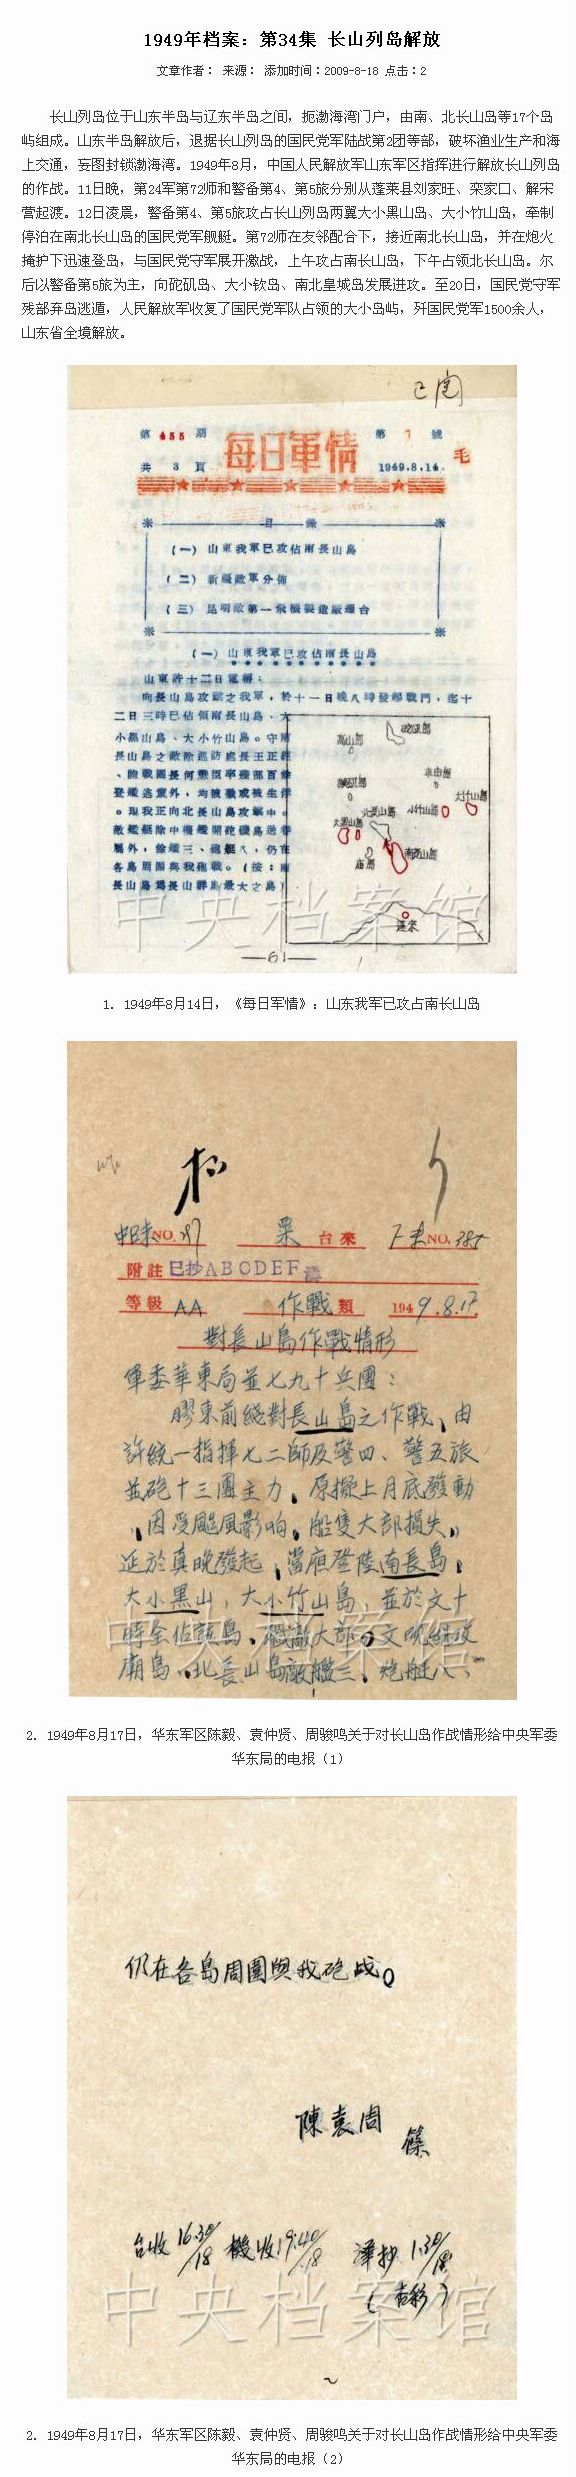 1949年档案：第34集 长山列岛解放
文章作者： 来源： 添加时间：2009-8-18 点击：2
长山列岛位于山东半岛与辽东半岛之间，扼渤海湾门户，由南、北长山岛等17个岛
屿组成。山东半岛解放后，退据长山列岛的国民党军陆战第2团等部，破坏渔业生产和海
上交通，妄图封锁渤海湾。1949年8月，中国人民解放军山东军区指挥进行解放长山列岛
的作战。11日晚，第24军第72师和警备第4、第5旅分别从蓬莱县刘家旺、栾家口、解宋
营起渡。12日凌晨，警备第4、第5旅攻占长山列岛两翼大小黑山岛、大小竹山岛，牵制
停泊在南北长山岛的国民党军舰艇。第72师在友邻配合下，接近南北长山岛，并在炮火
掩护下迅速登岛，与国民党守军展开激战，上午攻占南长山岛，下午占领北长山岛。尔
后以警备第5旅为主，向砣矶岛、大小钦岛、南北皇城岛发展进攻。至20日，国民党守军
残部弃岛逃遁，人民解放军收复了国民党军队占领的大小岛屿，歼国民党军1500余人，
山东省全境解放。
已阅
第 455 期 每日軍情 第 7 號
共 3 頁 1949.8.14. 毛
目 錄
(一) 山東我軍已攻佔南長山島
(二) 新疆敵軍分佈
(三) 昆明敵第一飛機製造廠遷台
(一) 山東我軍已攻佔南長山島
山東許十二日電稱：
向長山島攻擊之我軍，於十一日晚八時發起戰鬥，迄十
二日三時已佔領南長山島、大
小黑山島、大小竹山島。守南
長山島之敵除巡防處長王正經
、陸戰團長何恩廷率殘部百餘
登艦逃竄外，均被殲或被生俘
。現我正向北長山島攻擊中。
屬外，餘艦三、砲艇八，仍在
各島周圍與我砲戰。（按：南
長山島為長山群島最大之島）
砣磯島
高山島
車由島
大竹山島
小竹山島
北長山島
大黑山島
南長山島
庙島
蓬萊
61
中央档案馆
1. 1949年8月14日，《每日军情》：山东我军已攻占南长山岛
NO. 台來 NO. 385
附註 已抄ABCDEF
等級 AA 作戰 類 1949.8.17.
對長山島作戰情形
軍委華東局並七九十兵團：
膠東前綫對長山島之作戰，由
許統一指揮七二師及警四、警五旅
並砲十三團主力，原擬上月底發動
，因受颶風影响，船隻大部損失，
延於真晚發起，當夜登陸南長島，
大小黑山，大小竹山島，並於文十
時全佔該島，殲敵大部，文晚續攻
廟島，北長山島敵艦三，炮艇八，
中央档案馆
2. 1949年8月17日，华东军区陈毅、袁仲贤、周骏鸣关于对长山岛作战情形给中央军委
华东局的电报（1）
仍在各島周圍與我砲战。
陳袁周
篠
台收16.30/18 機收19:40/18 譯抄1.30/18
中央档案馆
2. 1949年8月17日，华东军区陈毅、袁仲贤、周骏鸣关于对长山岛作战情形给中央军委
华东局的电报（2）